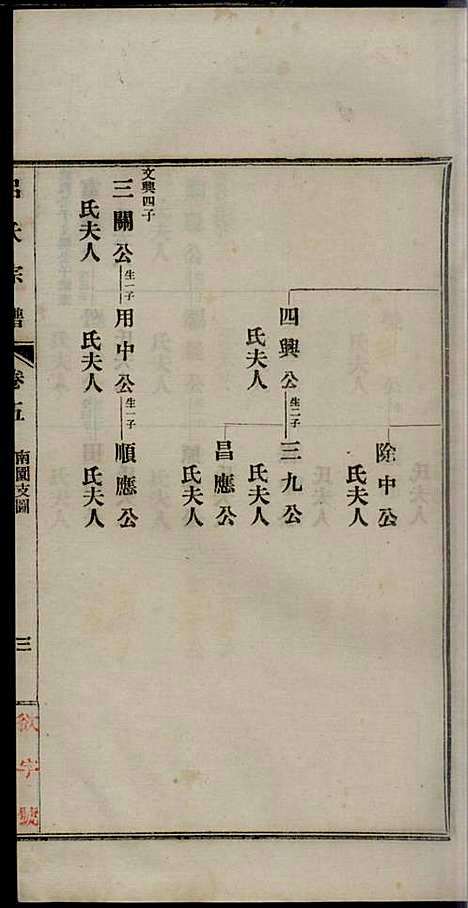 除中公
氏夫人
四興公 生二子 三九公
氏夫人
氏夫人
昌應公
氏夫人
文興四子
三關公 生一子 用中公 生一子 順應公
氏夫人
氏夫人
氏夫人
呂氏宗譜
卷五
南園支圖
三
字號